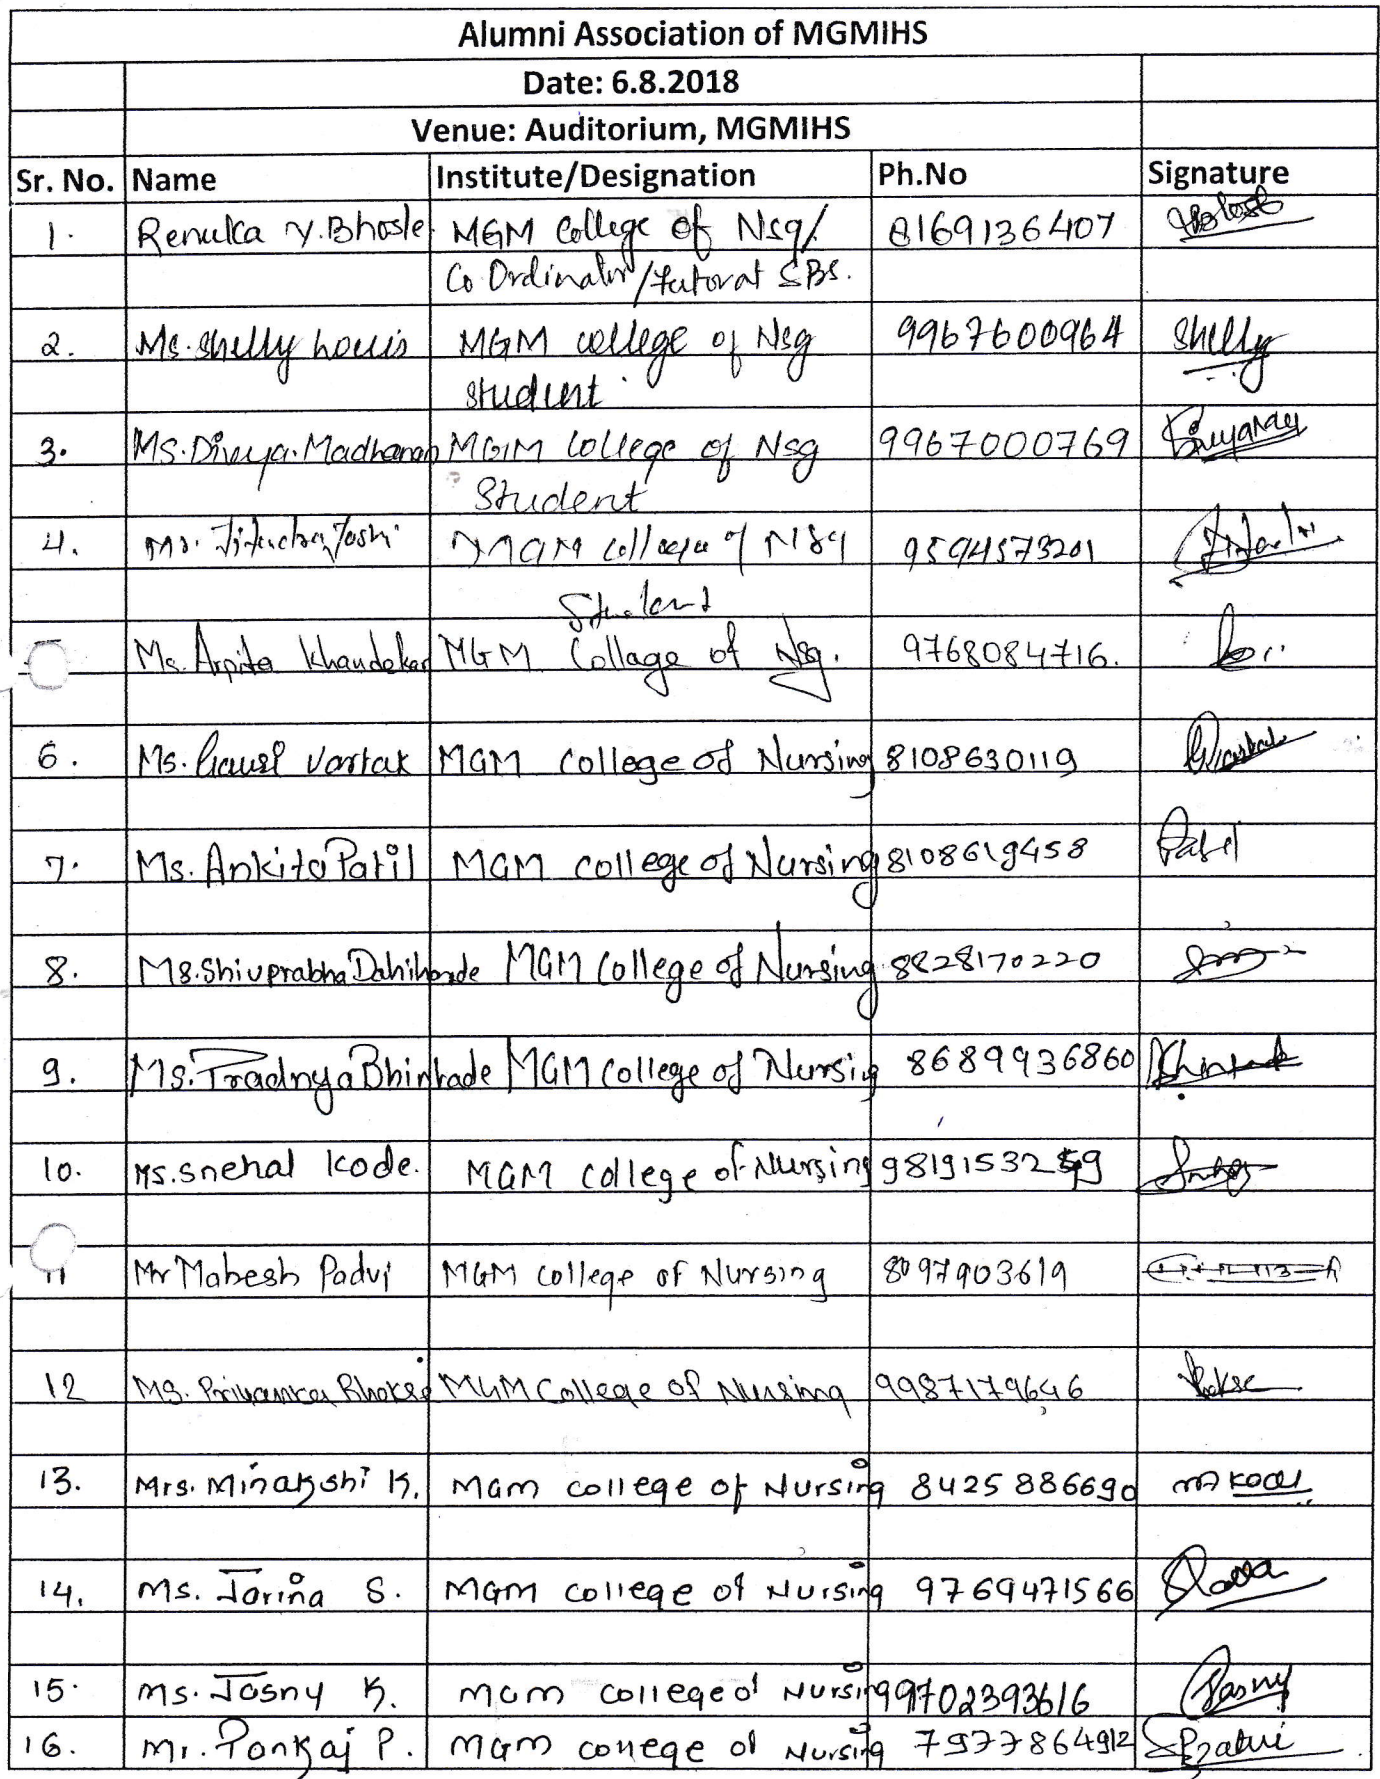 Alumni Association of MGMIHS
Date: 6.8.2018
Venue: Auditorium, MGMIHS
Sr. No. Name Institute/Designation Ph.No Signature
1. Renuka Y. Bhosle MGM College of Nsg/ 8169136407
Co Ordinator/tutor at SBS.
2. Ms. Shelly Louis MGM college of Nsg 9967600964 Shelly
student
3. Ms. Divya Madhanan MGM College of Nsg 9967000769
Student
4. Mr. Jitendra Joshi MGM College of Nsg 9594573201
Student
Ms. Arpita Khandekar MGM Collage of Nsg. 9768084716.
6. Ms. Gauri Vartak MGM College of Nursing 8108630119
7. Ms. Ankita Patil MGM College of Nursing 8108619458 Patil
8. Ms. Shivprabha Dahihande MGM College of Nursing 8828170220
9. Ms. Pradnya Bhinkade MGM College of Nursing 8689936860
10. Ms. Snehal Kode. MGM College of Nursing
11 Mr Mahesh Padvi MGM College of Nursing 8097903619
12 Ms. Priyanka Bhokse MGM College of Nursing 9987179646
13. Mrs. Minakshi K. MGM College of Nursing 8425886690
14. Ms. Jarina S. MGM College of Nursing 9769471566
15. Ms. Josny K. MGM College of Nursing 99702393616 Josny
16. Mr. Pankaj P. MGM College of Nursing 7977864912